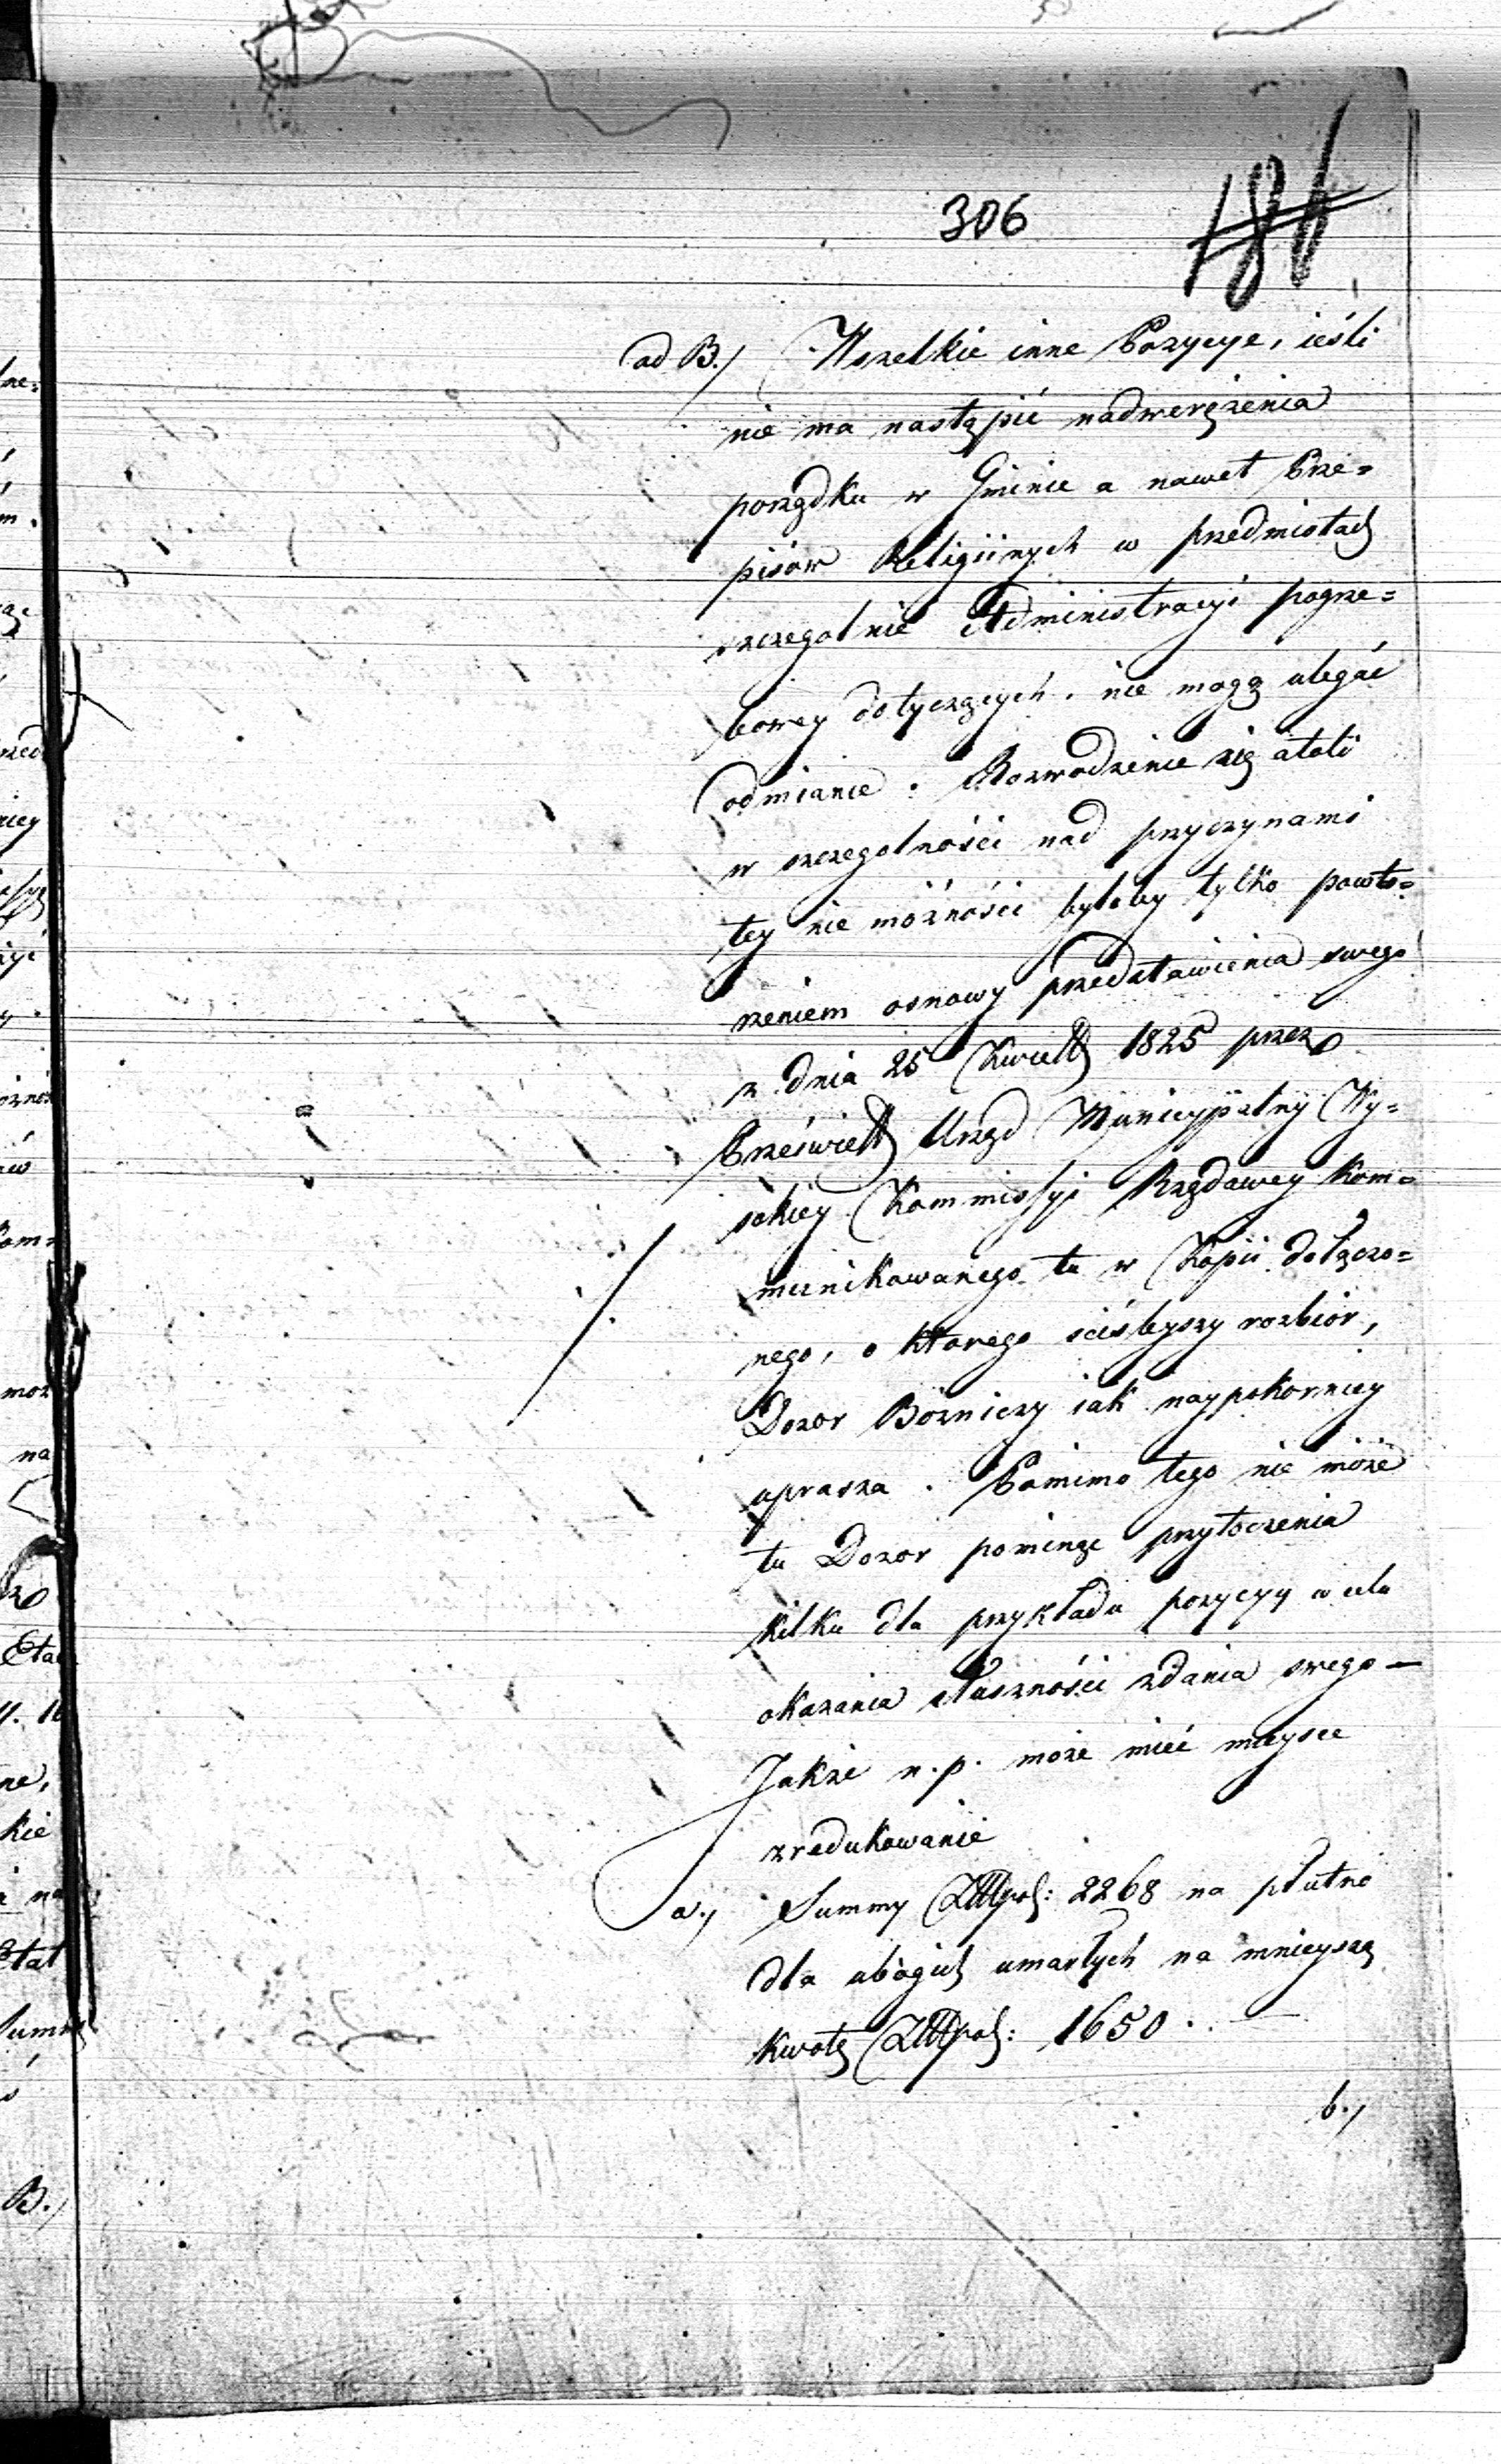 306
186
ad B./ Wszelkie inne Pozycye, ieśli
nie ma nastąpić nadwerężenia
porządku w Gminie a nawet Prze=
pisów Religiinych w przedmiotach
szczegolnie Administracyi pogrze=
bowey dotyczących. nie mogą ulegać
odmianie. Rozwodzenie się atoli
w szczegolności nad przyczynami
tey nie możności byłoby tylko powtó=
rzeniem osnowy przedstawienia swego
z dnia 25 Kwiet 1825 przez
Przeświet Urząd Municypalny Wy=
sokiey Kommissyi Rządowey Kom=
munikowanego tu w Kopii dołączo=
nego, o którego ściśleyszy rozbiór,
Dozor Bożniczy iak naypokorniey
uprasza. Pomimo tego nie może
tu Dozor pominąć przytoczenia
kilku dla przykładu pozycyy w celu
okazania słuszności zdania swego —
Jakże n.p. może mieć mieysce
zredukowanie
a., Summy Złtpol: 2268 na płutno
dla ubogich umarłych na mnieyszą
kwotę Złtpol: 1650. —
b.,